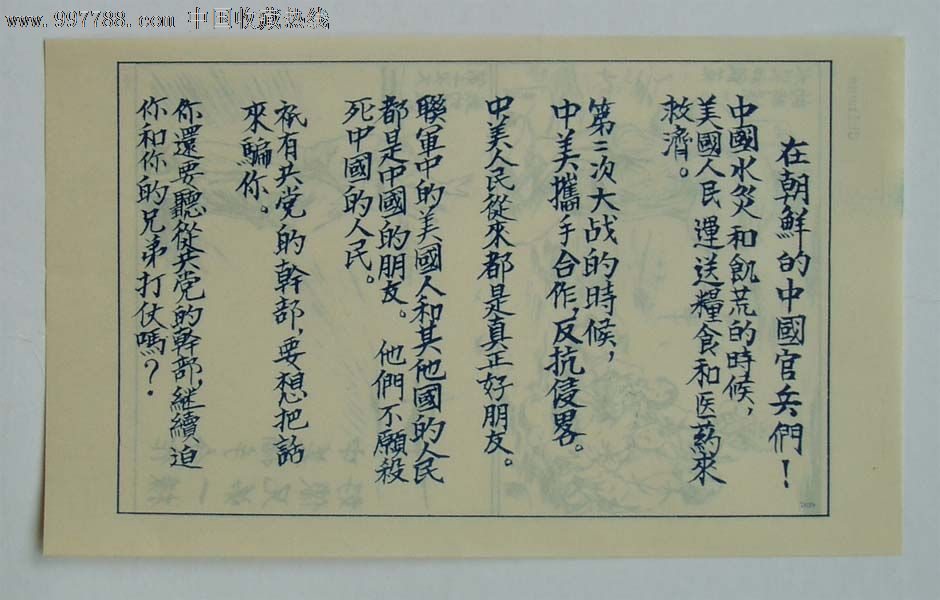 www.997788.com 中国收藏热线
在朝鮮的中國官兵們！
中國水災和飢荒的時候，
美國人民運送糧食和医葯来
救濟。
第二次大战的時候，
中美攜手合作，反抗侵畧。
中美人民從來都是真正好朋友。
聯軍中的美國人和其他國的人民
都是中國的朋友。他們不願殺
死中國的人民。
祇有共党的幹部，要想把話
來騙你。
你還要聽從共党的幹部，継續迫
你和你的兄弟打仗嗎？